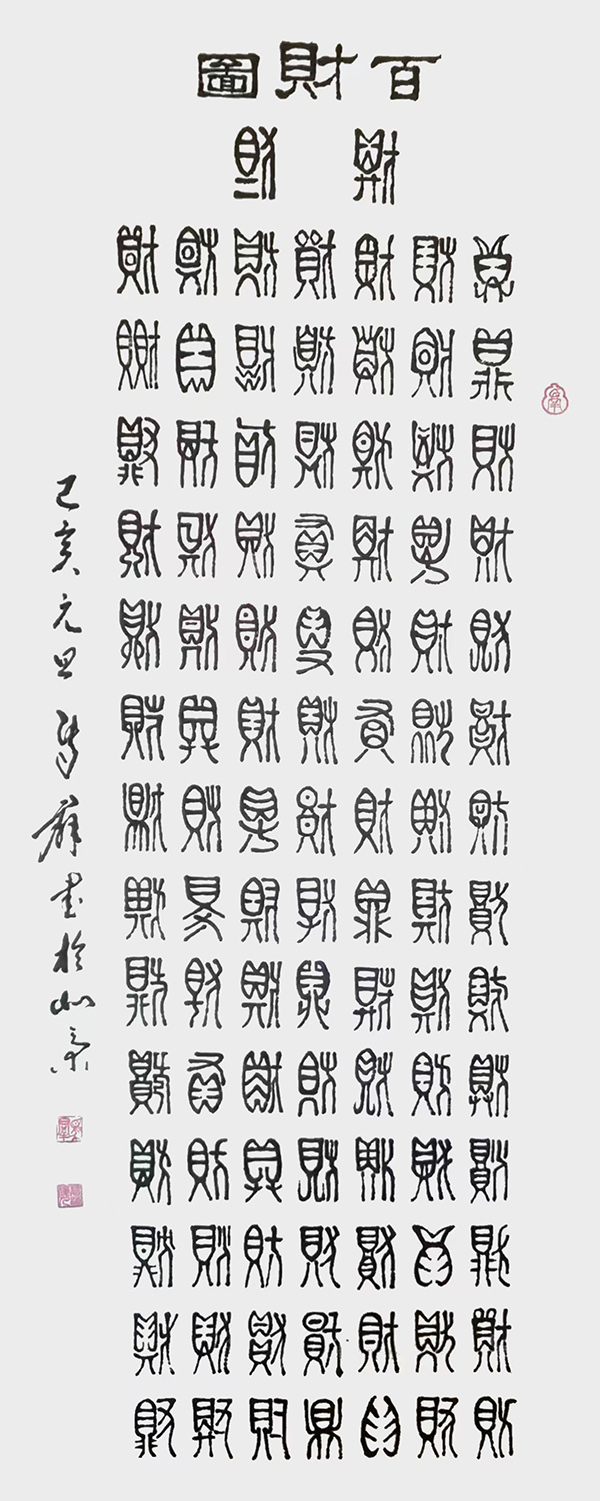 百財圖
財財
財財財財財財財財財財財財財財
財財財財財財財財財財財財財財
財財財財財財財財財財財財財財
財財財財財財財財財財財財財財
財財財財財財財財財財財財財財
財財財財財財財財財財財財財財
財財財財財財財財財財財財財財
己亥元旦群書於北京